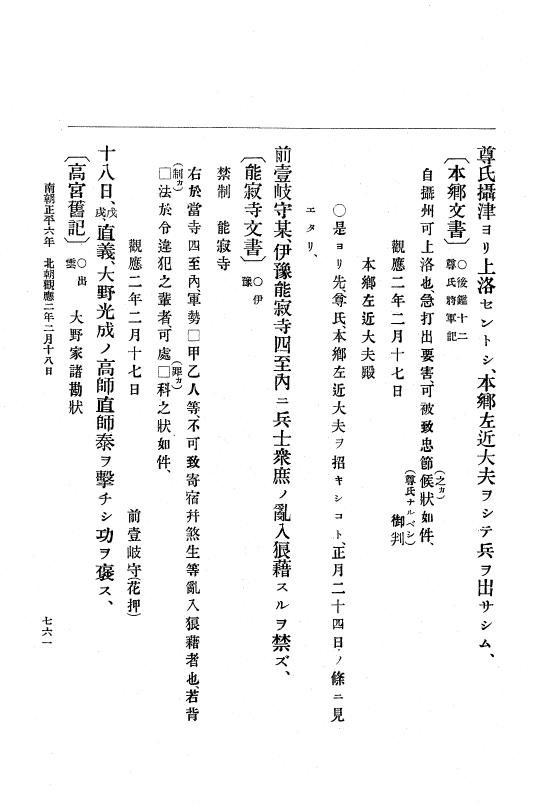 尊氏攝津ヨリ上洛セントシ、本郷左近大夫ヲシテ兵ヲ出サシム、
〔本郷文書〕○後鑑十二尊氏將軍記
自攝州可上洛也、急打出要害、可被致忠節候狀如件、
(之カ)
(尊氏ナルベシ)
御判
觀應二年二月十七日
本郷左近大夫殿
○是ヨリ先、尊氏、本郷左近大夫ヲ招キシコト、正月二十四日ノ條ニ見
エタリ、
前壹岐守某、伊豫能寂寺四至內ニ兵士衆庶ノ亂入狼藉スルヲ禁ズ、
〔能寂寺文書〕○伊豫
禁制 能寂寺
右於當寺四至內、軍勢□甲乙人等、不可致寄宿幷煞生等亂入狼藉者也、若背
(制カ)
(罪カ)
□法於令違犯之輩者、可處□科之狀如件、
觀應二年二月十七日
前壹岐守(花押)
十八日、戊戌、直義、大野光成ノ高師直師泰ヲ擊チシ功ヲ褒ス、
〔高宮舊記〕○出雲 大野家諸勘狀
南朝正平六年 北朝觀應二年二月十八日
七六一